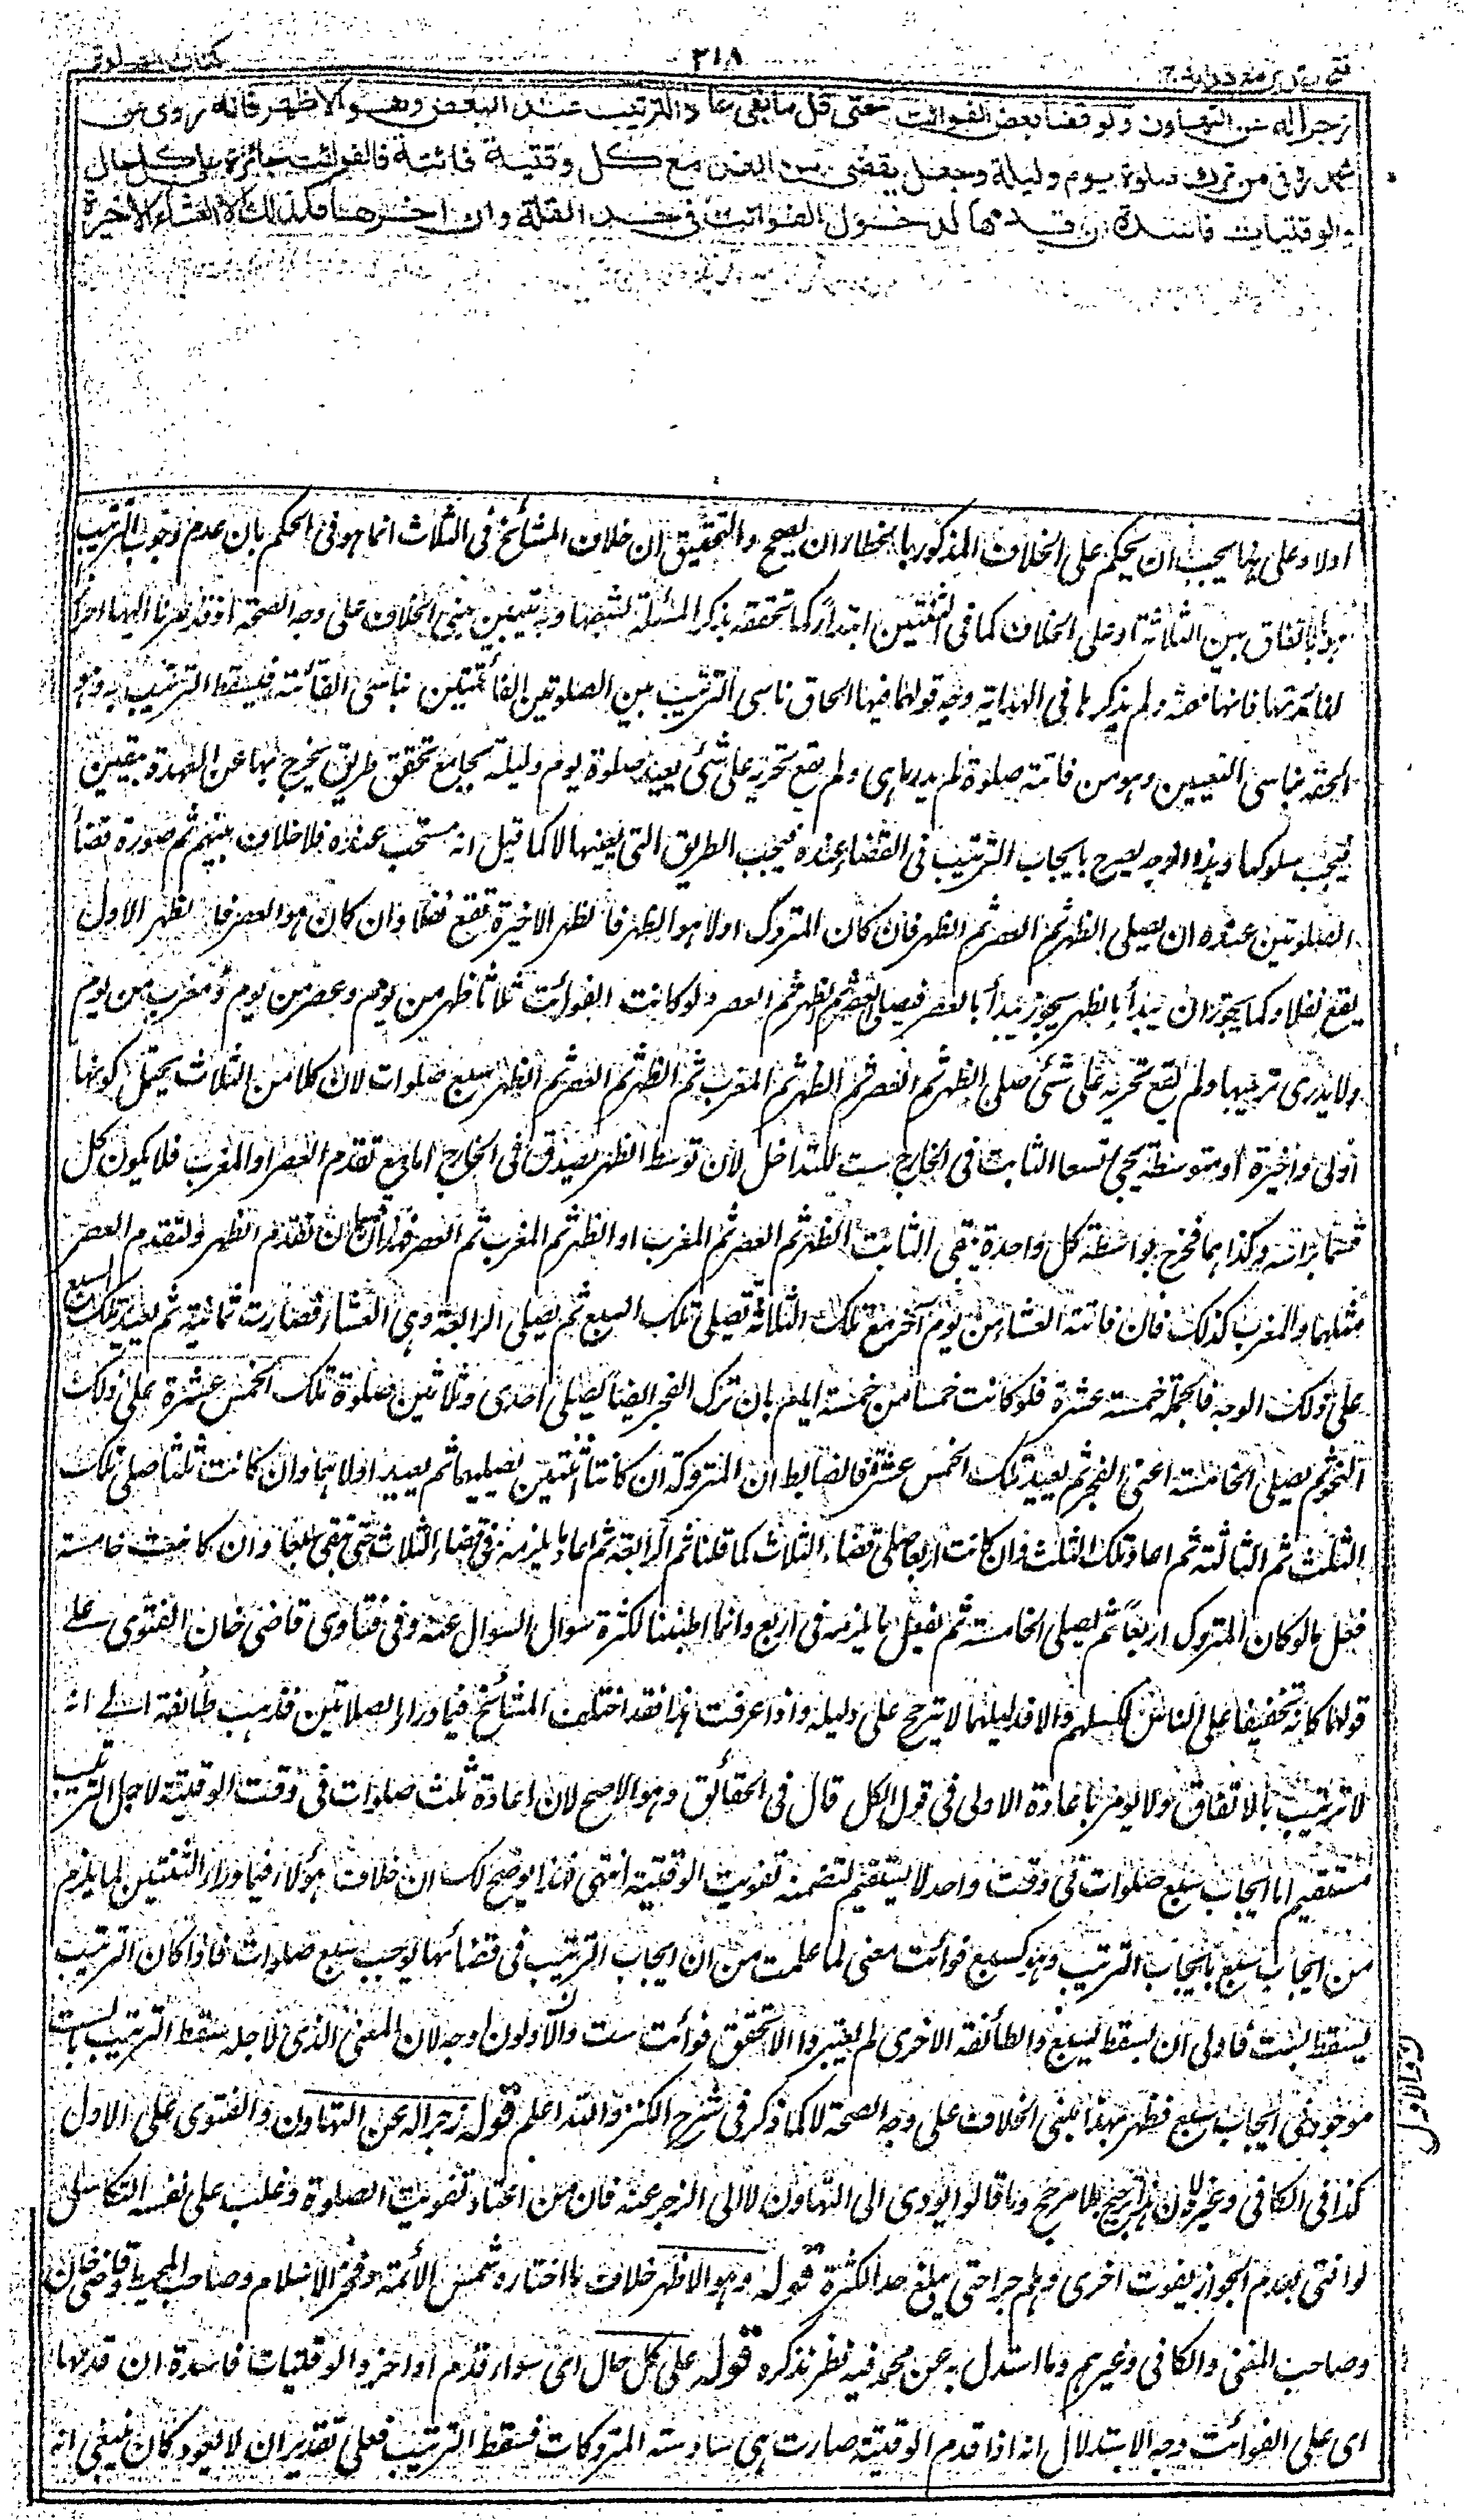 كتاب الصلوة
٣١٨
فتح القدير مع هداية ج
زجرا له عن التهاون ولو قضى بعض الفوائت حتى قل ما بقى عاد الترتيب عند البعض وهو الاظهر فانه روى عن
محمد فى من ترك صلوة يوم وليلة وجعل يقضى من الغد مع كل وقتية فائتة فالفوائت جائزة على كل حال
والوقتيات فاسدة ان قدمها لدخول الفوائت فى حد القلة وان اخرها فكذلك الا العشاء الاخيرة
اولا وعلى هذا يجب ان يحكم على الخلاف المذكور بالخطاء وان يصحح والتحقيق ان خلاف المشائخ فى الثلاث انما هو فى الحكم بان عدم وجوب الترتيب
هذا باتفاق بين الثلاثة او على الخلاف كما فى الثنتين ابتداء كما تحققه بذكر المسئلة لشعبها وبه يتبين مبنى الخلاف على وجه الصحة اذ قد جرنا اليها اخرا
لفائدتها فانها نعمة ولم يذكرها فى الهداية وجه قولهما فيها الحاق ناسى الترتيب بين الصلوتين الفائتتين بناسى الفائتة فيسقط الترتيب به وهو
الحقه بناسى التعيين وهو من فاتته صلوة لم يدر ما هى ولم يقع تحريه على شئ يعيد صلوة يوم وليلة بجامع تحقق طريق يخرج بها عن العهدة بيقين
فيجب سلوكها وهذا الوجه يصرح بايجاب الترتيب فى القضاء عنده فيجب الطريق التى يعينها لا كما قيل انه مستحب عنده فلا خلاف بينهم ثم صورة قضاء
الصلوتين عنده ان يصلى الظهر ثم العصر ثم الظهر فان كان المتروك اولا هو الظهر فالظهر الاخيرة تقع نفلا وان كان هو العصر فالظهر الاول
يقع نفلا وكما يجوز ان يبدأ بالظهر يجوز يبدأ بالعصر فيصلى العصر ثم الظهر ثم العصر ولو كانت الفوائت ثلاثا ظهر من يوم وعصر من يوم ومغرب من يوم
ولا يدرى ترتيبها ولم يقع تحريه على شئ صلى الظهر ثم العصر ثم الظهر ثم المغرب ثم الظهر ثم العصر ثم الظهر سبع صلوات لان كلا من الثلاث يحتمل كونها
اولى واخيرة او متوسطة يجئ تسعا الثابت فى الخارج ست للتداخل لان توسط الظهر يصدق فى الخارج اما مع تقدم العصر او المغرب فلا يكون كل
قسما برأسه وكذا هما فخرج بواسطة كل واحدة بقى الثابت الظهر ثم العصر ثم المغرب او الظهر ثم المغرب ثم العصر فهذان قسمان تقدم الظهر ولتقدم العصر
مثلهما والمغرب كذلك فان فاتته العشاء من يوم آخر مع تلك الثلاثة تصلى تلك السبع ثم يصلى الرابعة وهى العشاء فصارت ثمانية ثم يعيد تلك السبع
على ذلك الوجه فالجملة خمسة عشرة فلو كانت خمسا من خمسة ايام بان ترك الفجر ايضا يصلى احدى وثلاثين صلوة تلك الخمس عشرة على ذلك
النحو ثم يصلى الخامسة اعنى الفجر ثم يعيد تلك الخمس عشرة فالضابط ان المتروكة ان كانتا ثنتين يصليهما ثم يعيد اولاهما وان كانت ثلثا صلى تلك
الثلث ثم الثالثة ثم اعاد تلك الثلث وان كانت اربعا صلى قضاء الثلاث كما قلنا ثم الرابعة ثم اعاد ما يلزمه فى قضاء الثلاث وان كانت خامسة
فعل ما لو كان المتروك اربعا ثم يصلى الخامسة ثم يفعل ما يلزمه فى اربع وانما اطنبنا لكثرة سؤال السوال عنه وفى فتاوى قاضى خان الفتوى على
قولهما كانه تخفيفا على الناس لكسلهم والا فدليلهما لا يترجح على دليله واذا عرفت هذا فقد اختلف المشائخ فيما وراء الصلاتين فذهب طائفة الى انه
لا ترتيب بالاتفاق ولا يؤمر باعادة الاولى فى قول الكل قال فى الحقائق وهو الاصح لان اعادة ثلث صلوات فى وقت الوقتية لاجل الترتيب
مستقيم اما ايجاب سبع صلوات فى وقت واحد لا يستقيم لتضمنه تفويت الوقتية انتهى فهذا يوضح لك ان خلاف هؤلاء فيما وراء الثنتين لما يلزم
من ايجاب سبع بايجاب الترتيب وهو كسبع فوائت معنى لما علمت من ان ايجاب الترتيب فى قضائها يوجب سبع صلوات فاذا كان الترتيب
يسقط بست فاولى ان يسقط بسبع والطائفة الاخرى لم يعتبروا الا تحقق فوائت ست والاولون اوجه لان المعنى الذى لاجله سقط الترتيب بالست
موجود فى ايجاب سبع فظهر بهذا مبنى الخلاف على وجه الصحة لا كما ذكر فى شرح الكنز والله اعلم قوله زجرا له عن التهاون والفتوى على الاول
كذا فى الكافى وغيره لان هذا ترجيح بلا مرجح وما قالوا يؤدى الى التهاون لا الى الزجر عنه فان من اعتاد تفويت الصلوة وغلب على نفسه التكاسل
لو افتى بعدم الجواز يفوت اخرى وهلم جرا حتى يبلغ حد الكثرة قوله وهو الاظهر خلاف ما اختاره شمس الائمة وفخر الاسلام وصاحب المحيط وقاضى خان
وصاحب المغنى والكافى وغيرهم وما استدل به عن محمد فيه نظر نذكره قوله على كل حال اى سواء قدم او اخر والوقتيات فاسدة ان قدمها
اى على الفوائت وجه الاستدلال انه اذا قدم الوقتية صارت هى سادسة المتروكات فسقط الترتيب فعلى تقدير ان لا يعود كان ينبغى انه